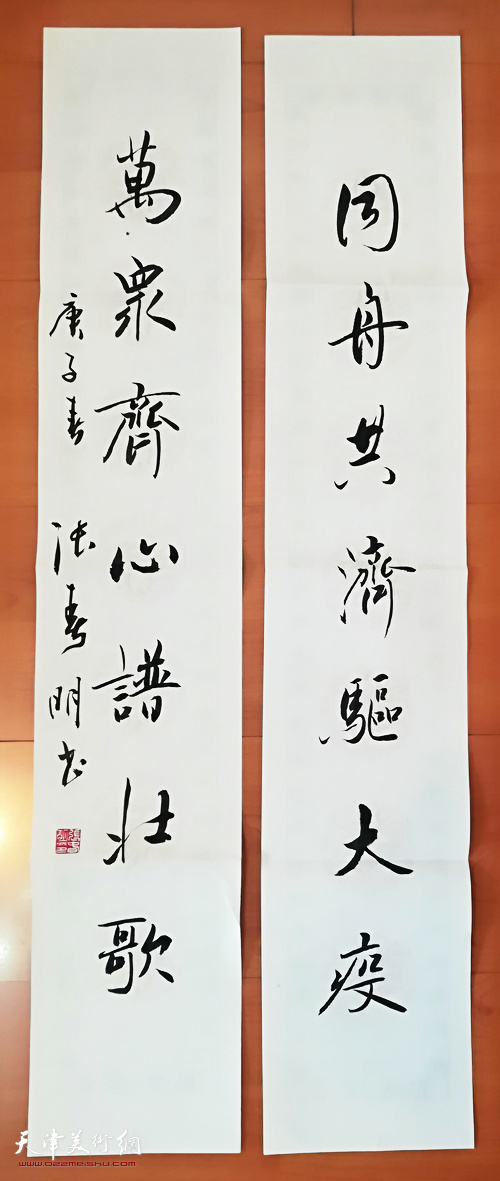 同舟共濟驅大疫
萬眾齊心譜壯歌
庚子春 張春明書
天津美術網
www.022meishu.com